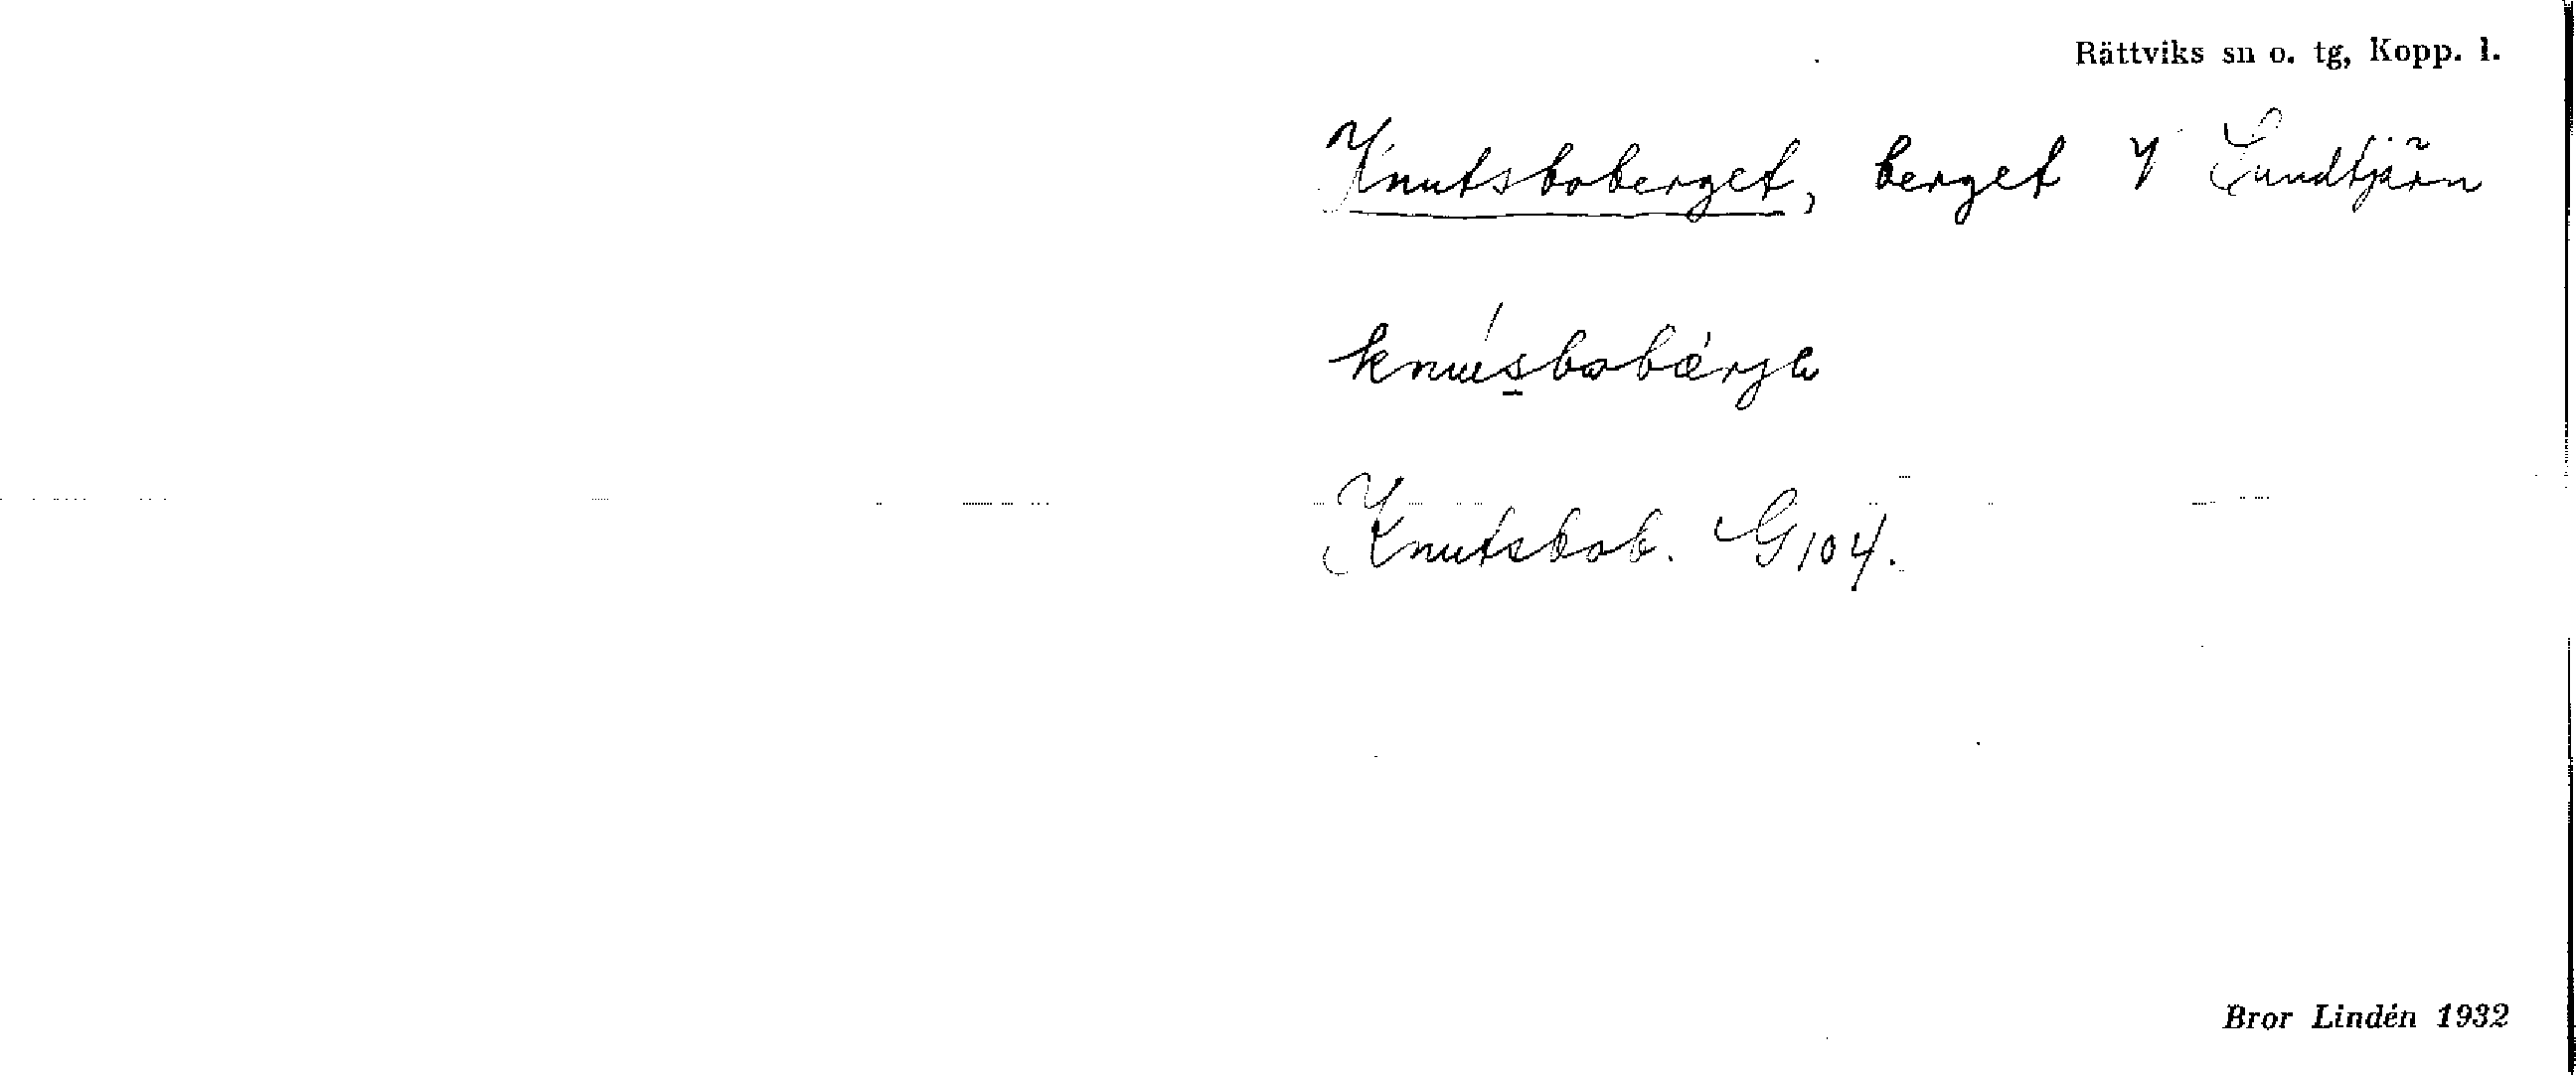 Rättviks sn o. tg, Kopp. l.
Knutsboberget, berget V Lundtjärn
Knutsbob. G 104.
Bror Lindén 1932